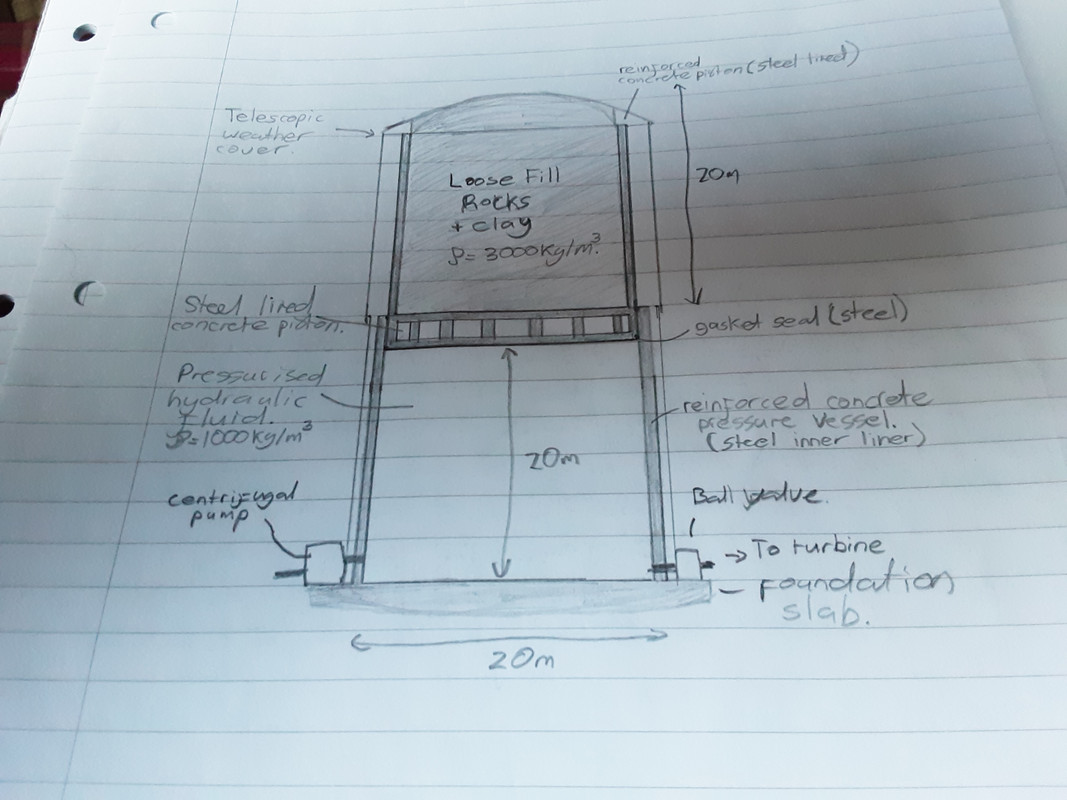 reinforced
concrete piston (steel lined)
Telescopic
weather
cover.
20m
Loose Fill
Rocks
+ clay
ρ= 3000Kg/m³.
Steel lined
concrete piston.
gasket seal (steel)
Pressurised
hydraulic
fluid.
ρ=1000Kg/m³
reinforced concrete
pressure vessel.
(steel inner liner)
20m
centrifugal
pump
Ball valve.
→ To turbine
Foundation
slab.
20m